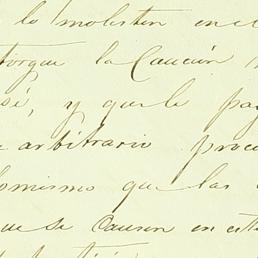 lo molesten en el
torgue la Caucion
sé, y que le pag
arbitrario proce
lo mismo que las
que se Causen en esta